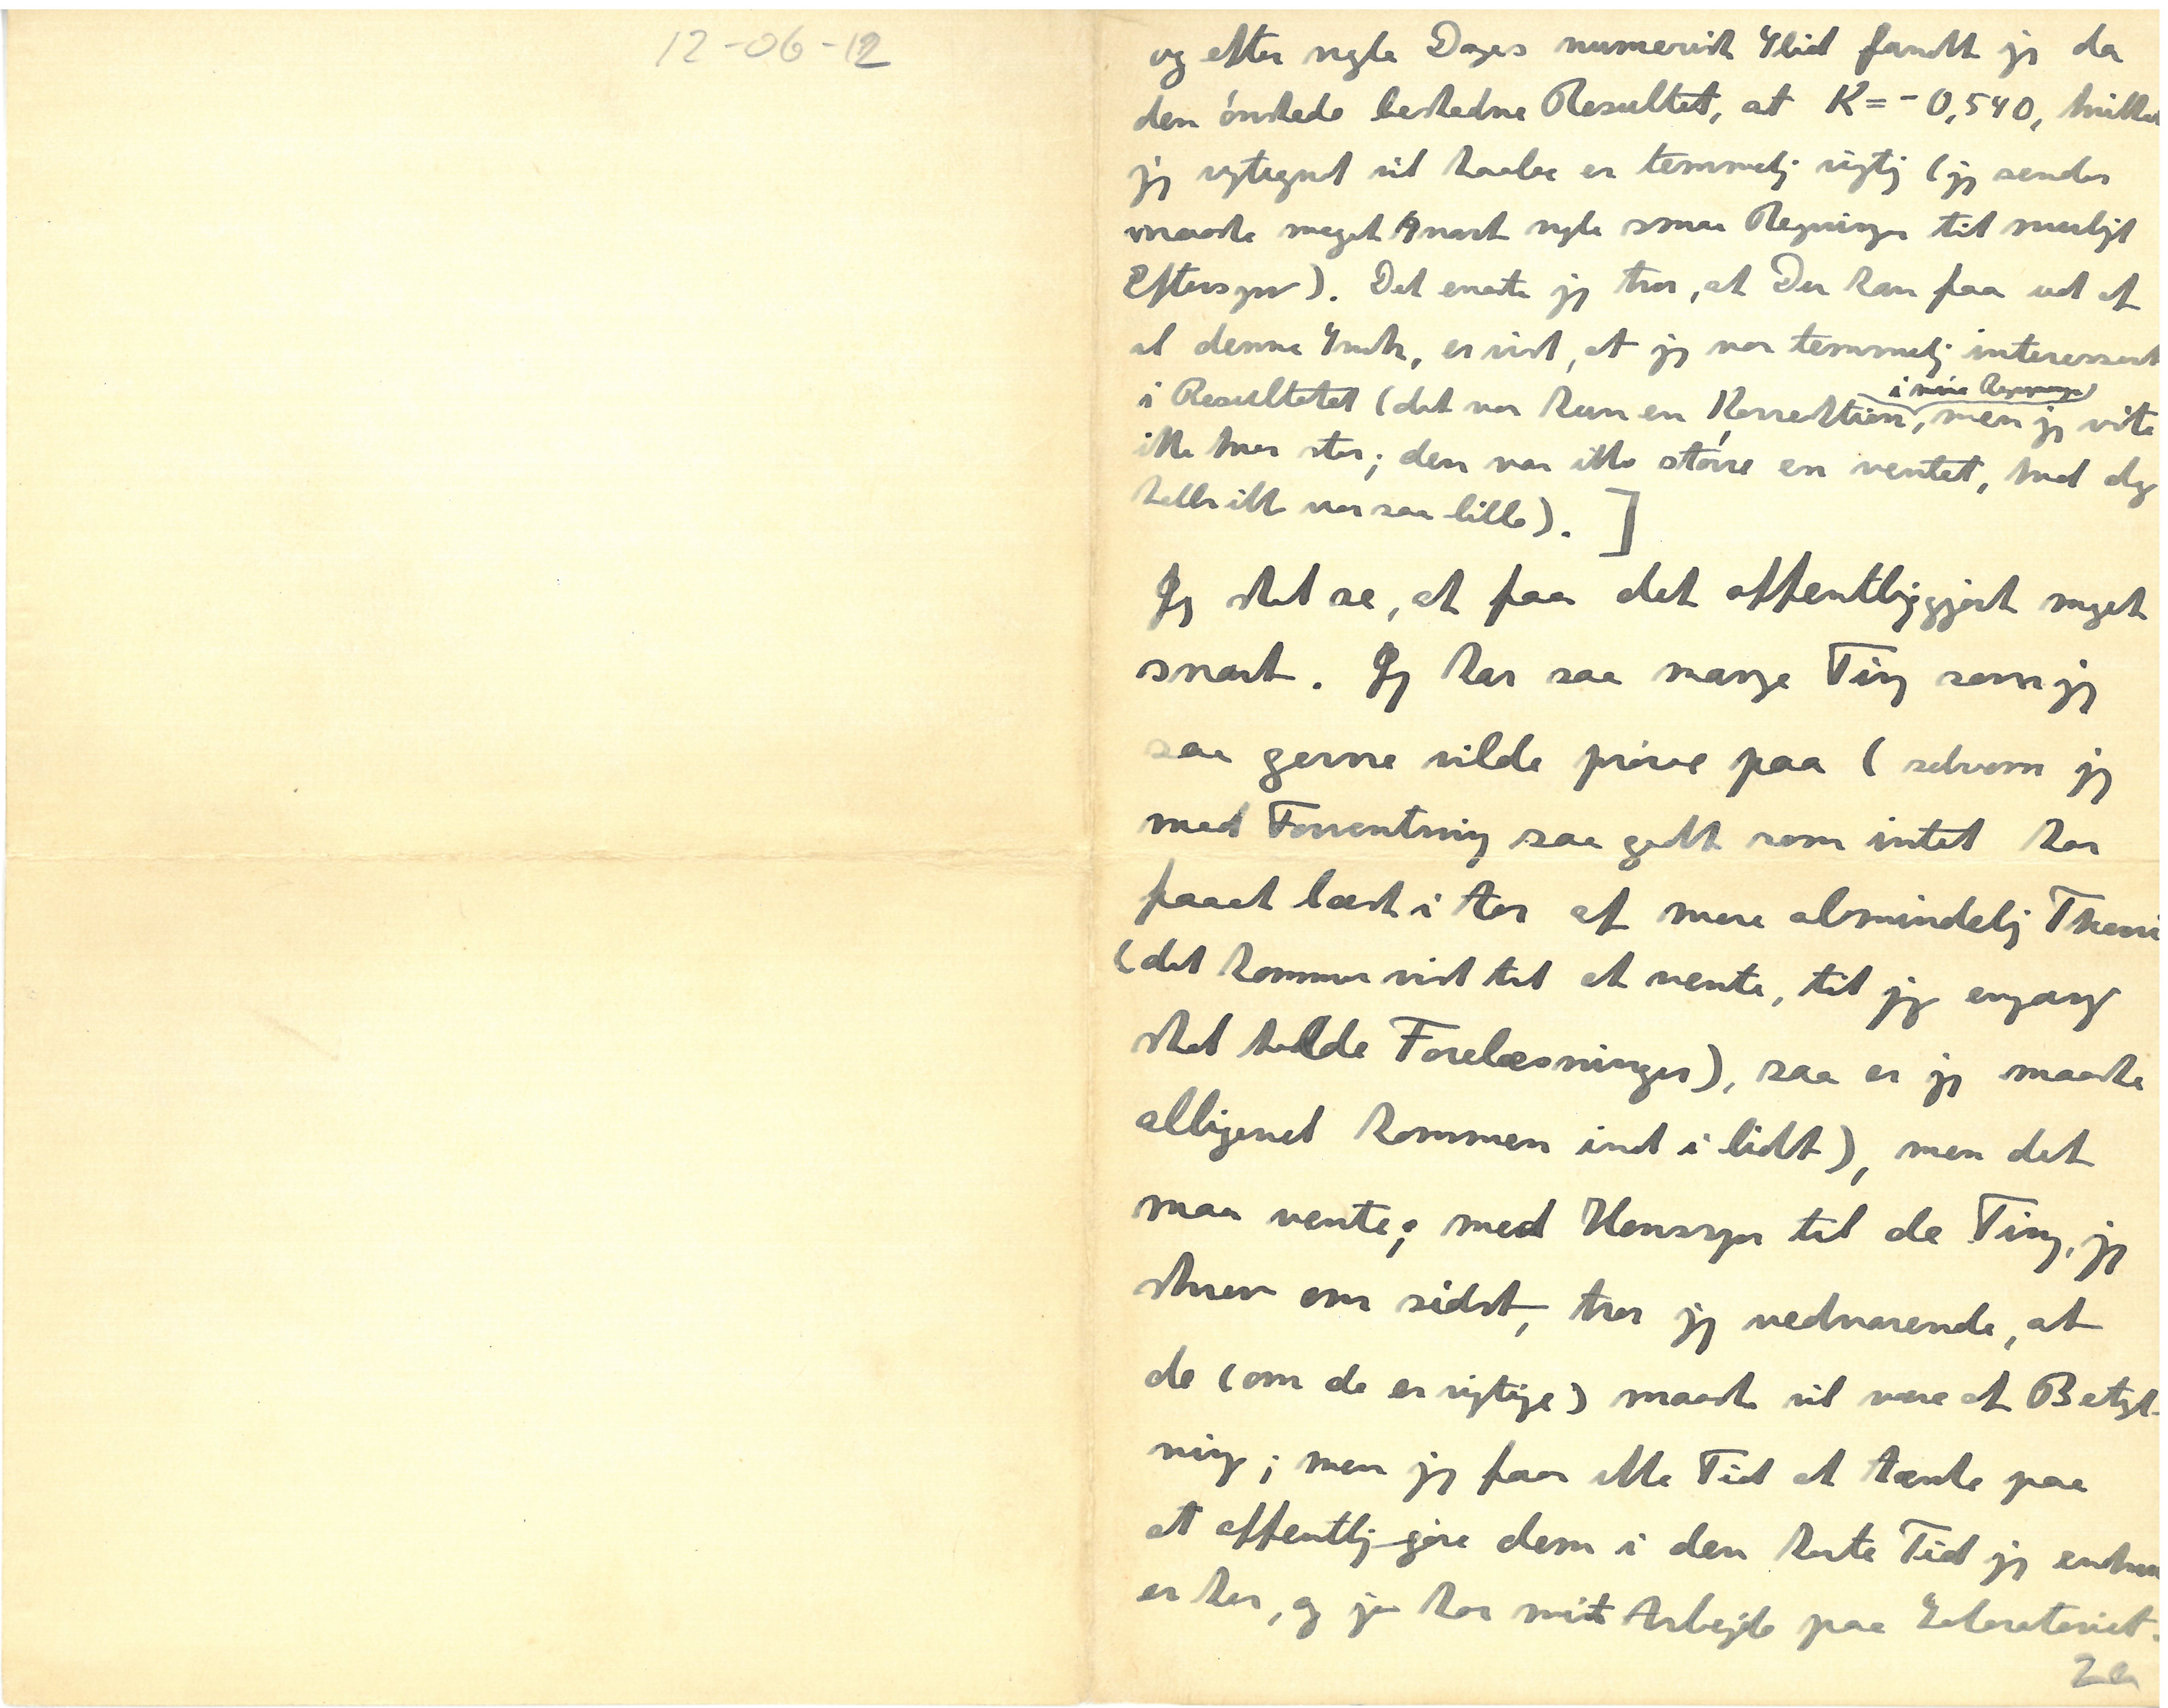 12-06-12
og efter nogle Dages numerisk Slid fandt jeg da
den ønskede beskedne Resultet, at K = - 0,540, hvilket
jeg vil haabe er temmelig rigtig (jeg sender
maaske meget snart nogle smaa Regninger til muligt
Eftersyn). Det eneste jeg tror, at Du kan faa ud af
al denne Snak, er vist, at jeg var temmelig interesseret
i Resultatet (det var kun en Korrektion, men jeg vidste
i mine Regninger
ikke hvor stor; den var ikke større en ventet, hvad dog
heller ikke var saa lille). ]
Jeg skal se, at faa det offentliggjort meget
snart. Jeg har saa mange Ting som jeg
saa gerne vilde prøve paa (selvom jeg
mod Forventning saa godt som intet har
faaet læst i Aar af mere almindelig Theori
(det kommer vist til at vente, til jeg engang
skal holde Forelæsninger), saa er jeg maaske
alligevel kommen ind i lidt), men det
maa vente; med Hensyn til de Ting, jeg
skrev om sidst, tror jeg vedvarende, at
de (om de er rigtige) maaske vil være af Betyd-
ning; men jeg faar ikke Tid at tænke paa
at offentlig-gøre dem i den korte Tid jeg endnu
er her, og jeg har mit Arbejde paa Laboratoriet.
2a